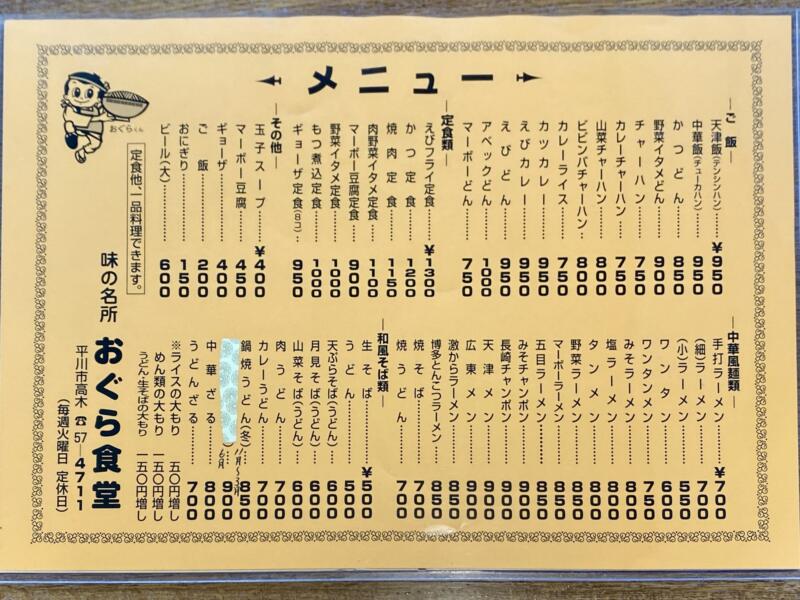 メニュー
―ご飯―
天津飯(テンシンハン)………¥950
中華飯(チューカハン)………950
かつどん………850
野菜イタメどん………900
チャーハン………750
カレーチャーハン………750
山菜チャーハン………800
ビビンバチャーハン………800
カレーライス………750
カツカレー………950
えびカレー………950
えびどん………950
アベックどん………1000
マーボーどん………750
―定食類―
えびフライ定食………¥1300
かつ定食………1200
焼肉定食………1150
肉野菜イタメ定食………1100
マーボー豆腐定食………900
野菜イタメ定食………1000
もつ煮込定食………1000
ギョーザ定食(8コ)………950
―その他―
玉子スープ………¥400
マーボー豆腐………450
ギョーザ………400
ご飯………200
おにぎり………150
ビール(大)………600
定食他、一品料理できます。
おぐらくん
―中華風麺類―
手打ラーメン………¥700
(細)ラーメン………700
(小)ラーメン………550
ワンタン………600
ワンタンメン………750
みそラーメン………800
塩ラーメン………800
タンメン………800
野菜ラーメン………850
マーボーラーメン………850
五目ラーメン………850
みそチャンポン………900
長崎チャンポン………900
天津メン………900
広東メン………
激からラーメン………850
博多とんこつラーメン………850
焼そば………700
焼うどん………700
―和風そば類―
生そば………¥500
うどん………500
天ぷらそば(うどん)………600
月見そば(うどん)………600
山菜そば(うどん)………600
肉うどん………700
カレーうどん………700
鍋焼うどん(冬)………850
11月〜3月
)………900
6月
中華ざる………800
うどんざる………700
※ライスの大もり 五〇円増し
めん類の大もり 一五〇円増し
うどん・生そばの大もり 一五〇円増し
味の名所 おぐら食堂
平川市高木 ☎57―4711
(毎週火曜日 定休日)